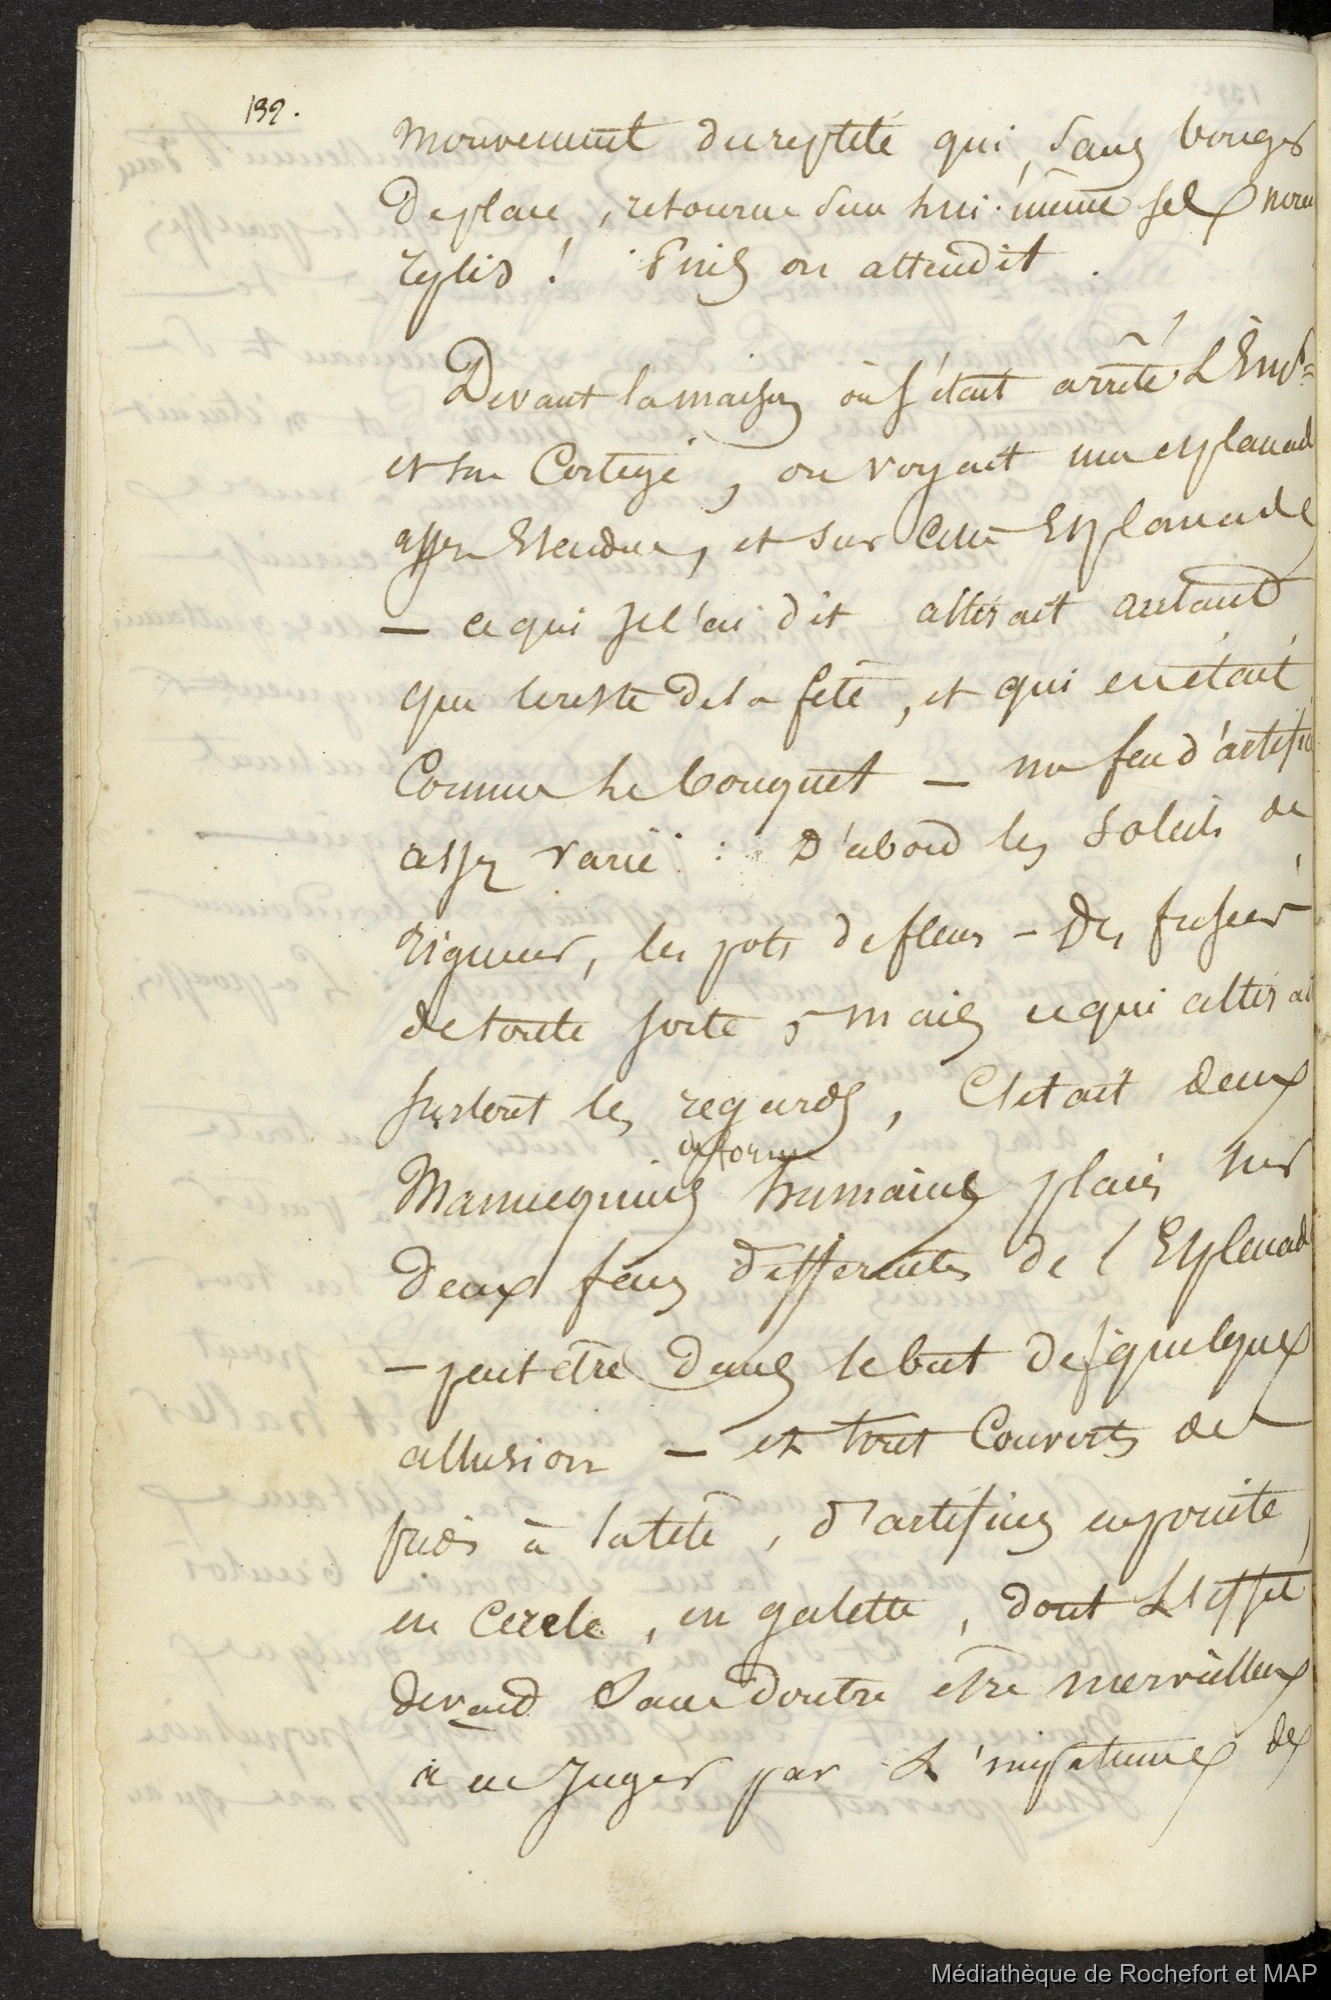 132.
mouvement du reptile qui, sans bouger
de place, retourne sur lui-même ses
replis ! Puis on attendit.
Devant la maison où s'était arrêté L'Emp=
et son Cortege, on voyait une esplanad
assez Etendue, et sur Cette Esplanade
— ce qui je l'ai dit attirait autant
que le reste de la fête, et qui en était
Comme le bouquet — un feu d'artifi
assez varié : D'abord les Soleils de
rigueur, les pots de fleurs — Des fusées
de toute sorte, mais ce qui attirai
surtout les regards, C'était deux
en forme
Mannequins humains placés sur
deux feux differents de l'Esplanad
— peut être dans le but de quelque
allusion — et tout Couverts de
pieds à la tête, d'artifices en pointe
en Cercle, en galette, dont L'effet
devait Sans doutre être merveilleux
à en Juger par L'impatience des
Médiathèque de Rochefort et MAP